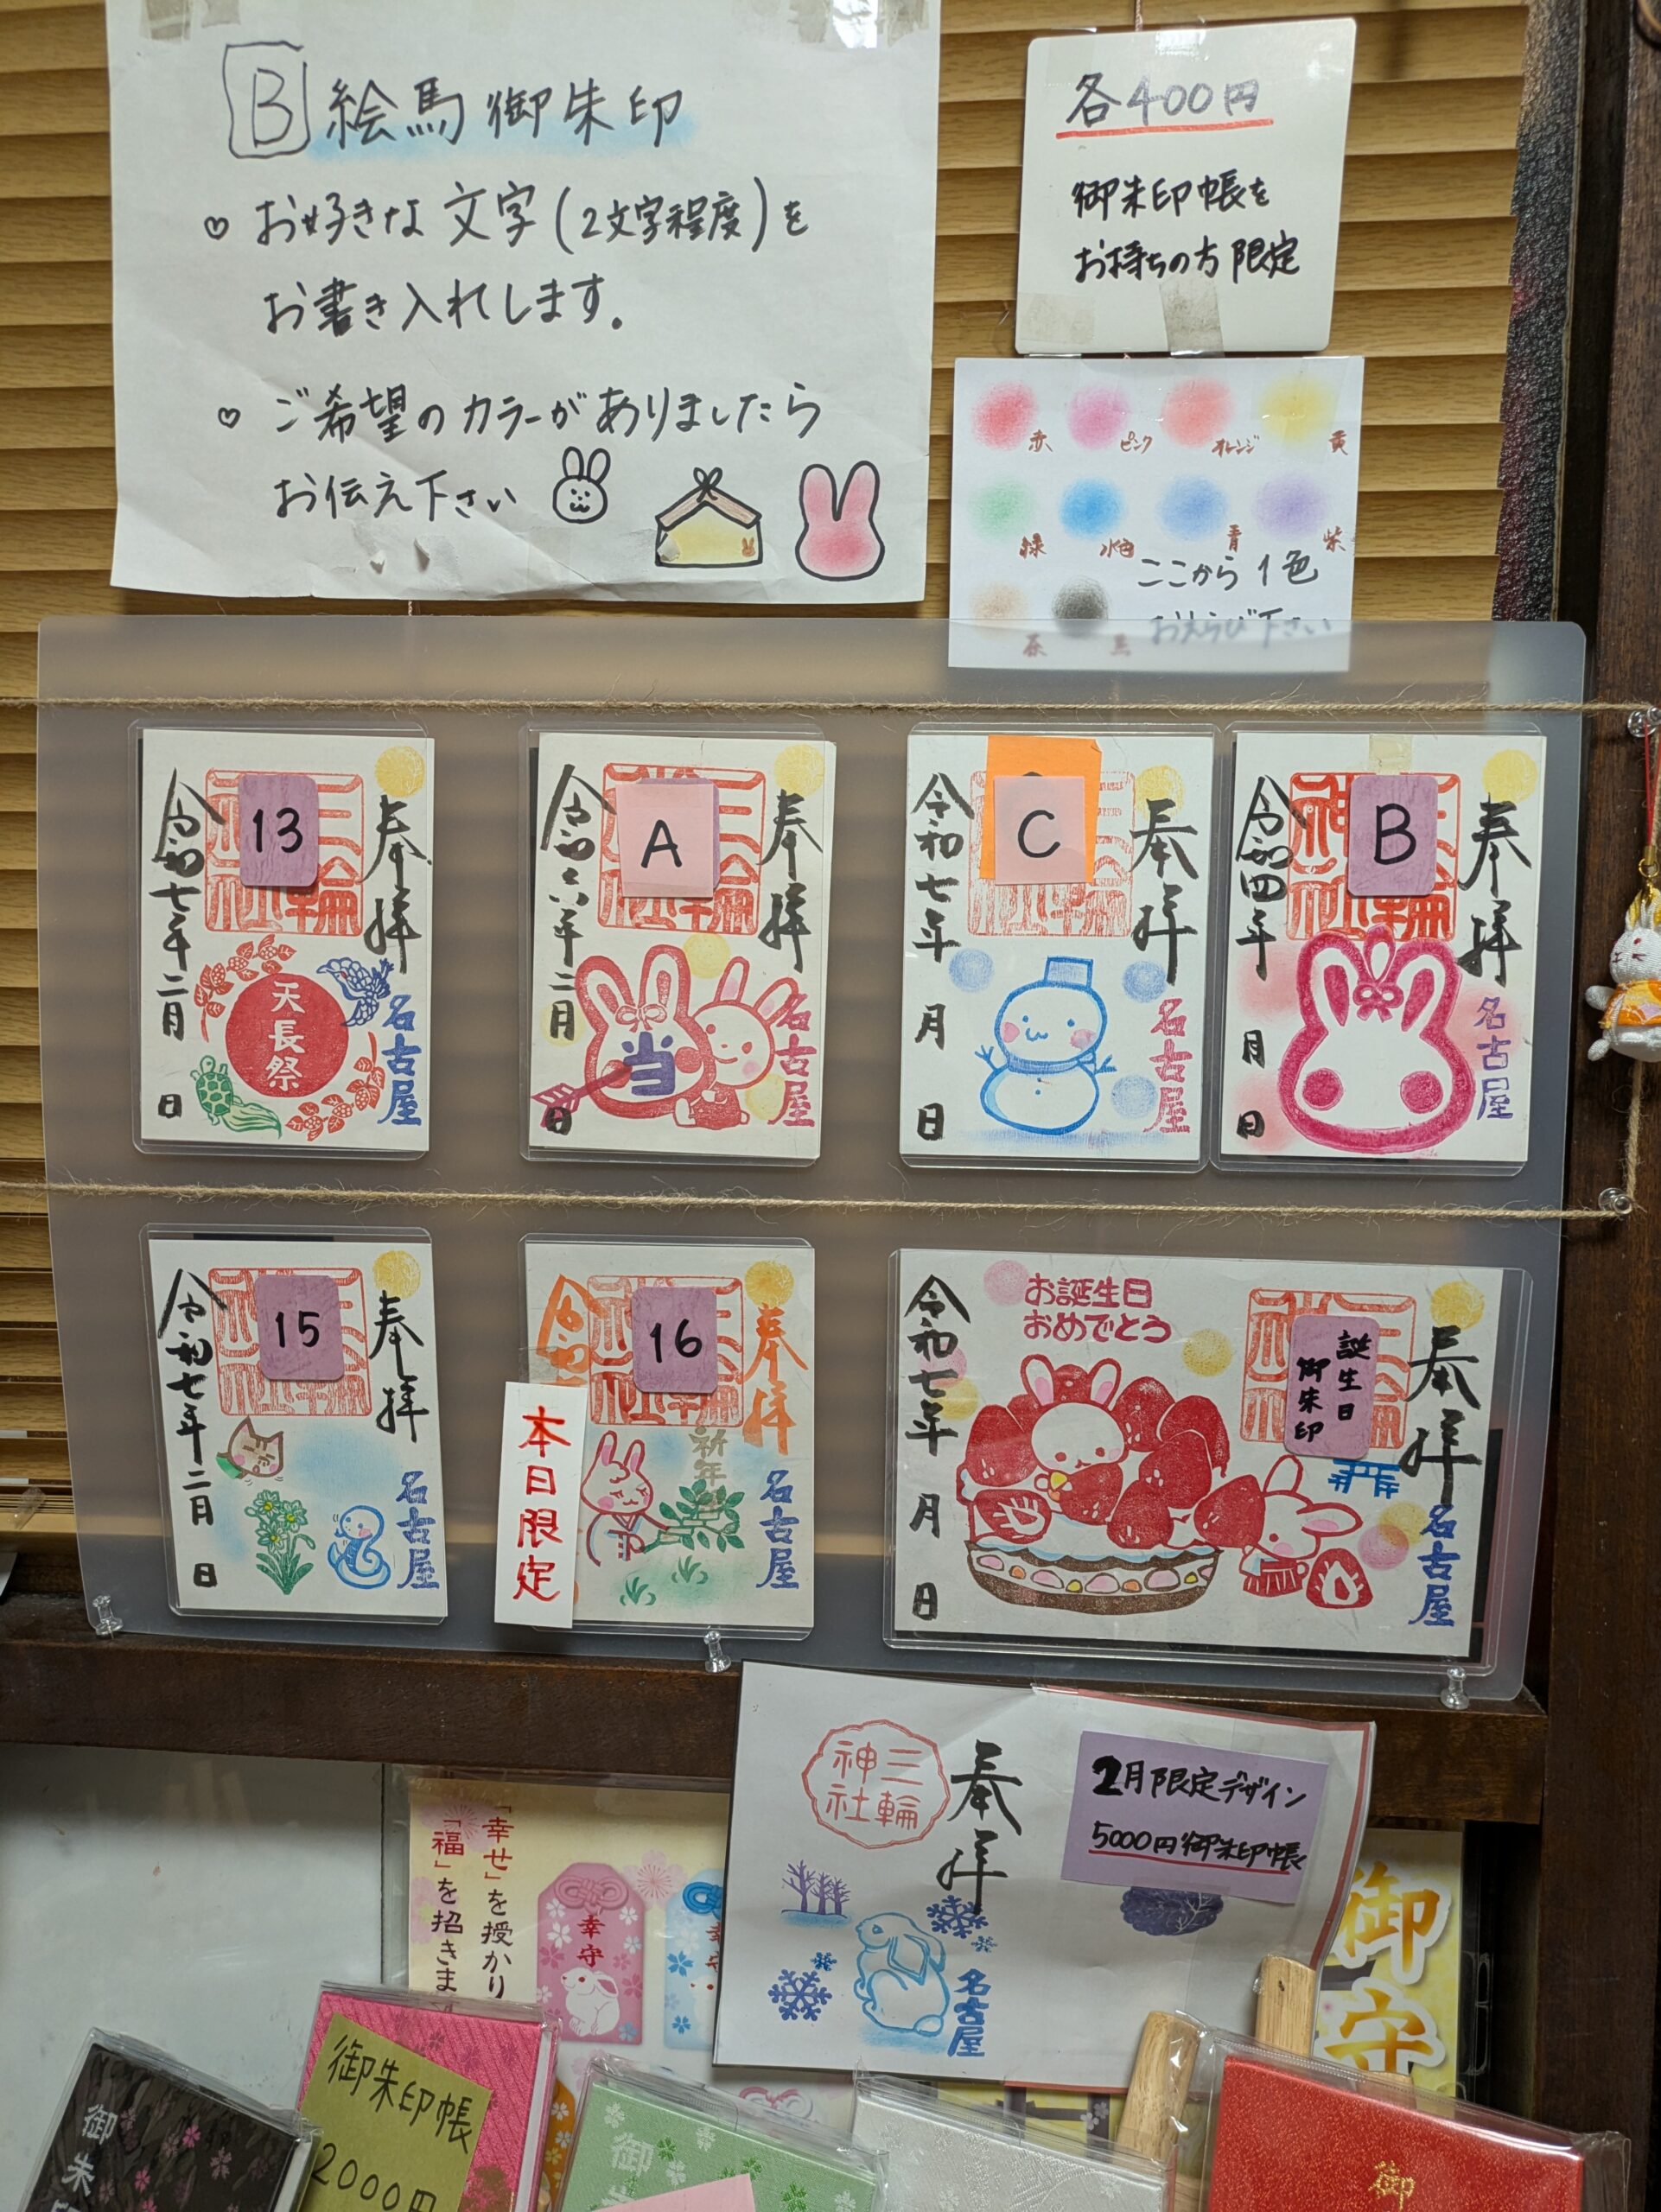 B 絵馬御朱印
♡ お好きな文字(2文字程度)を
お書き入れします。
♡ ご希望のカラーがありましたら
お伝え下さい
各400円
御朱印帳を
お持ちの方限定
赤 ピンク オレンジ 黄
緑 水色 青 紫
ここから1色
おえらび下さい
茶 黒
奉拝
13
天長祭
名古屋
令和七年二月 日
奉拝
A
当
名古屋
令和六年二月 日
奉拝
C
名古屋
令和七年 月 日
奉拝
B
名古屋
令和四年 月 日
奉拝
15
名古屋
令和七年二月 日
奉拝
16
祈年
名古屋
令和
本日限定
奉拝
誕生日
御朱印
お誕生日
おめでとう
名古屋
令和七年 月 日
奉拝
三輪
神社
名古屋
2月限定デザイン
5000円御朱印帳
「幸せ」を授かり
「福」を招きま
幸守
御守
御朱印帳
2000円
御朱印
御
御